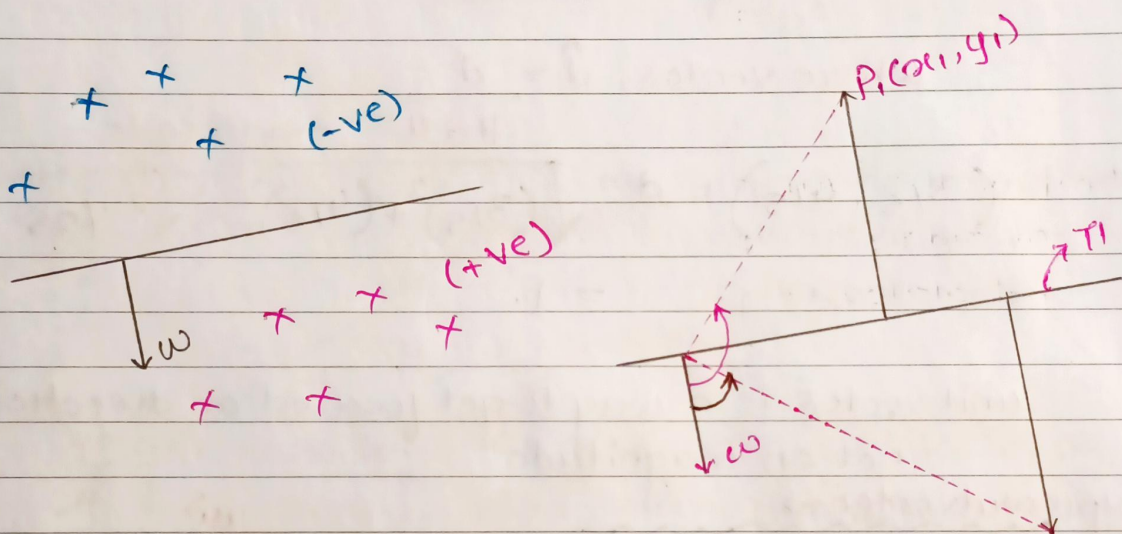 (-ve)
(+ve)
w
P₁(x₁, y₁)
π
w